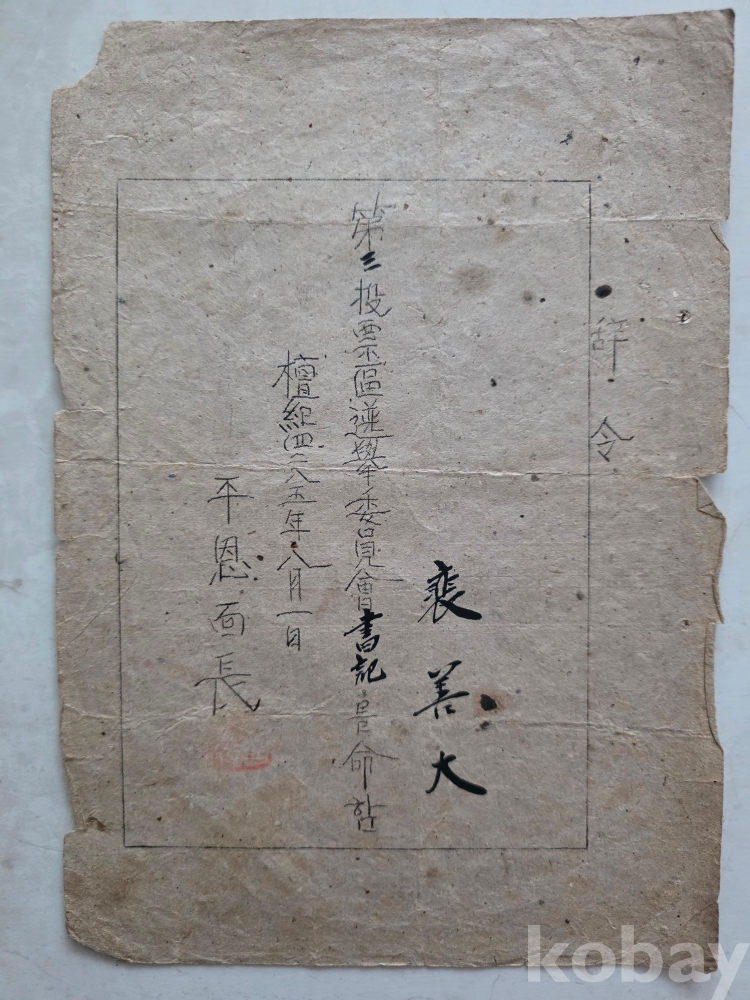 辞令
裵善大
第三投票區選擧委員會書記를命함
檀紀四二八五年八月一日
平恩面長
kobay